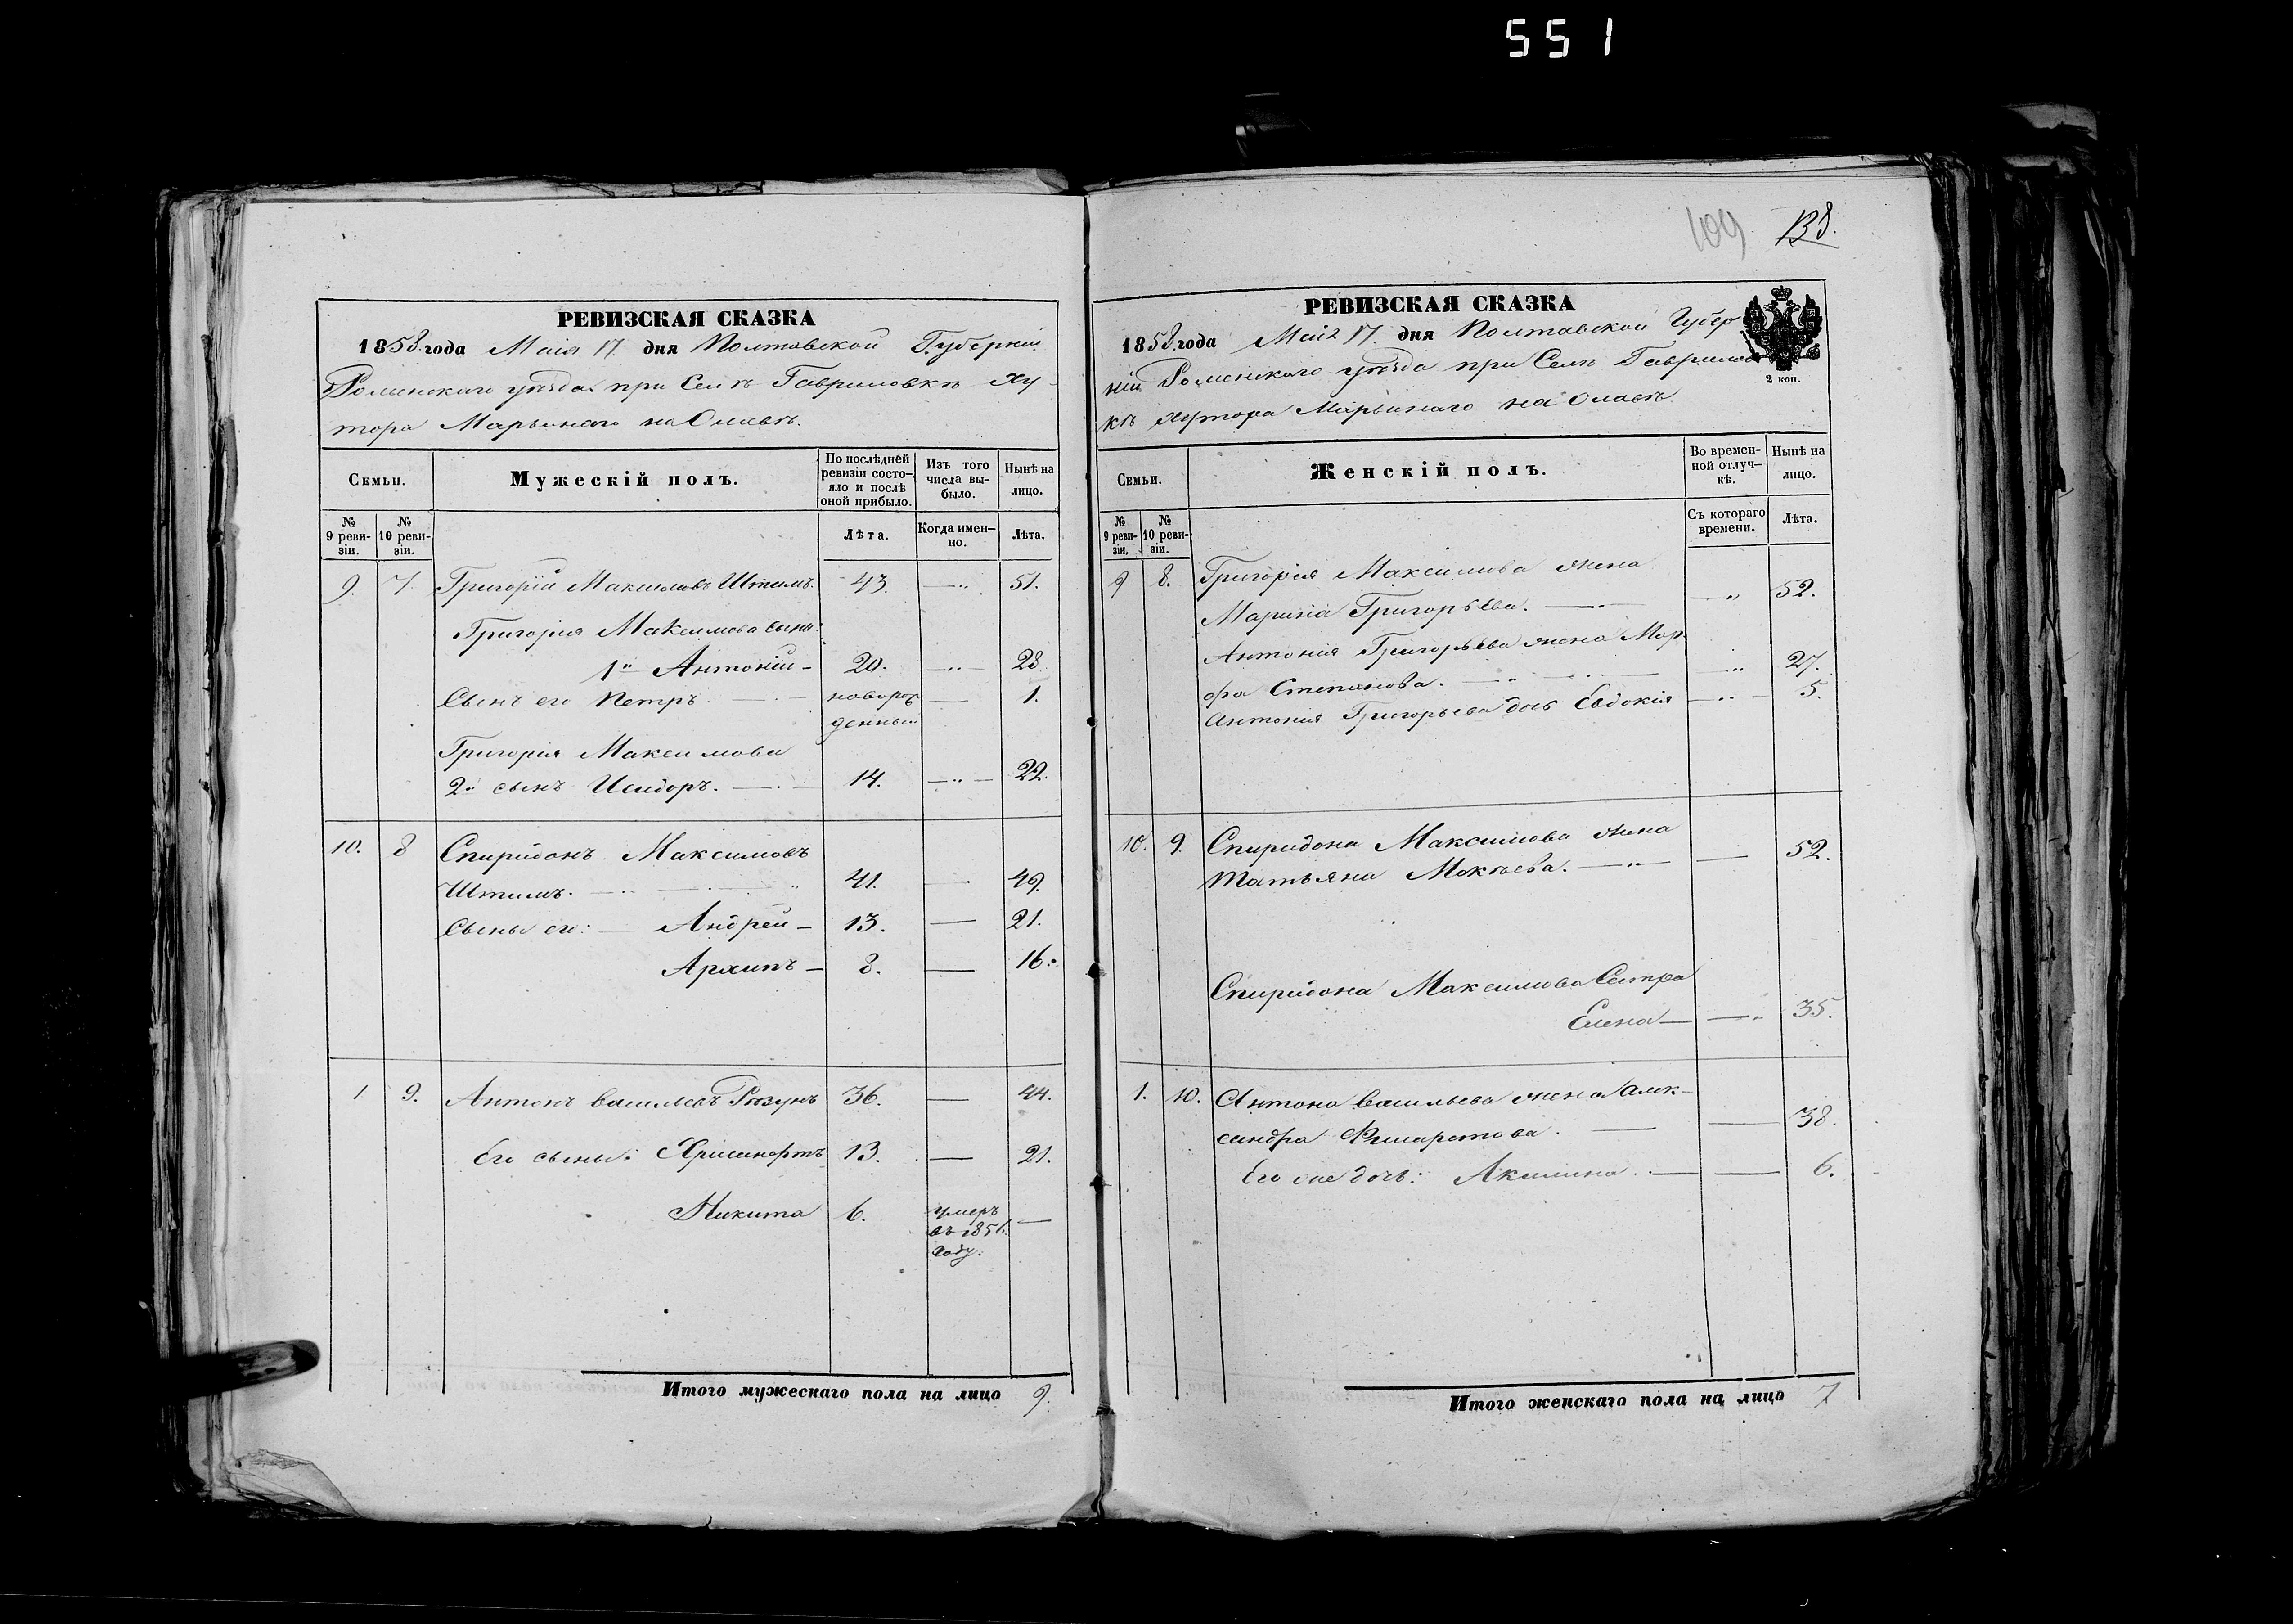 551
109 138.
РЕВИЗСКАЯ СКАЗКА
1858 года Маія 17. дня Полтавской Губерніи
Роменского уѣзда при Селѣ Гавриловкѣ Ху-
тора Марьинаго на Олавѣ.
Семьи.
Мужескій полъ.
По послѣдней ревизіи состояло и послѣ оной прибыло.
Изъ того числа выбыло.
Нынѣ на лицо.
№ 9 ревизіи.
№ 10 ревизіи.
Лѣта.
Когда именно.
Лѣта.
9. 7. Григорій Максимовъ Штымъ. 43. —„— 51.
Григорія Максимова сыны:
1й Антоній — 20. —„— 28
Сынъ его Петръ — новорожденный — 1.
Григорія Максимова
2й сынъ Исидоръ. — 14. —„— 22.
10. 8 Спиридонъ Максимовъ
Штымъ. — 41. — 49.
Сыны его: Андрей — 13. — 21.
Архипъ — 8. — 16.
1 9. Антонъ Васильевъ 36. — 44.
Его сыны: Хрисанфортъ 13. — 21.
Никита 6. умеръ —
въ 1856.
году.
Итого мужескаго пола на лицо 9.
РЕВИЗСКАЯ СКАЗКА
1858 года Маія 17. дня Полтавской Губер
ніи Роменскаго уѣзда при Селѣ Гаврилов
кѣ хутора Марьинаго на Олавѣ
2 коп.
Семьи.
Женскій полъ.
Во временной отлучкѣ.
Нынѣ на лицо.
№ 9 ревизіи.
№ 10 ревизіи.
Съ котораго времени.
Лѣта.
9 8. Григорія Максимова жена
Марина Григорьева. — —„ 52.
Антонія Григорьева жена Мар
фа Степанова. — —„ 27.
Антонія Григорьева дочь Евдокія —„— 5.
10. 9. Спиридона Максимова жена
Татьяна Мокѣева. — — 52.
Спиридона Максимова Сестра
Елена — —„ 35.
1. 10. Антона Васильева жена Алек-
сандра Филаретова. — — 38.
Его же дочь: Акилина. — — 6.
Итого женскаго пола на лицо 7